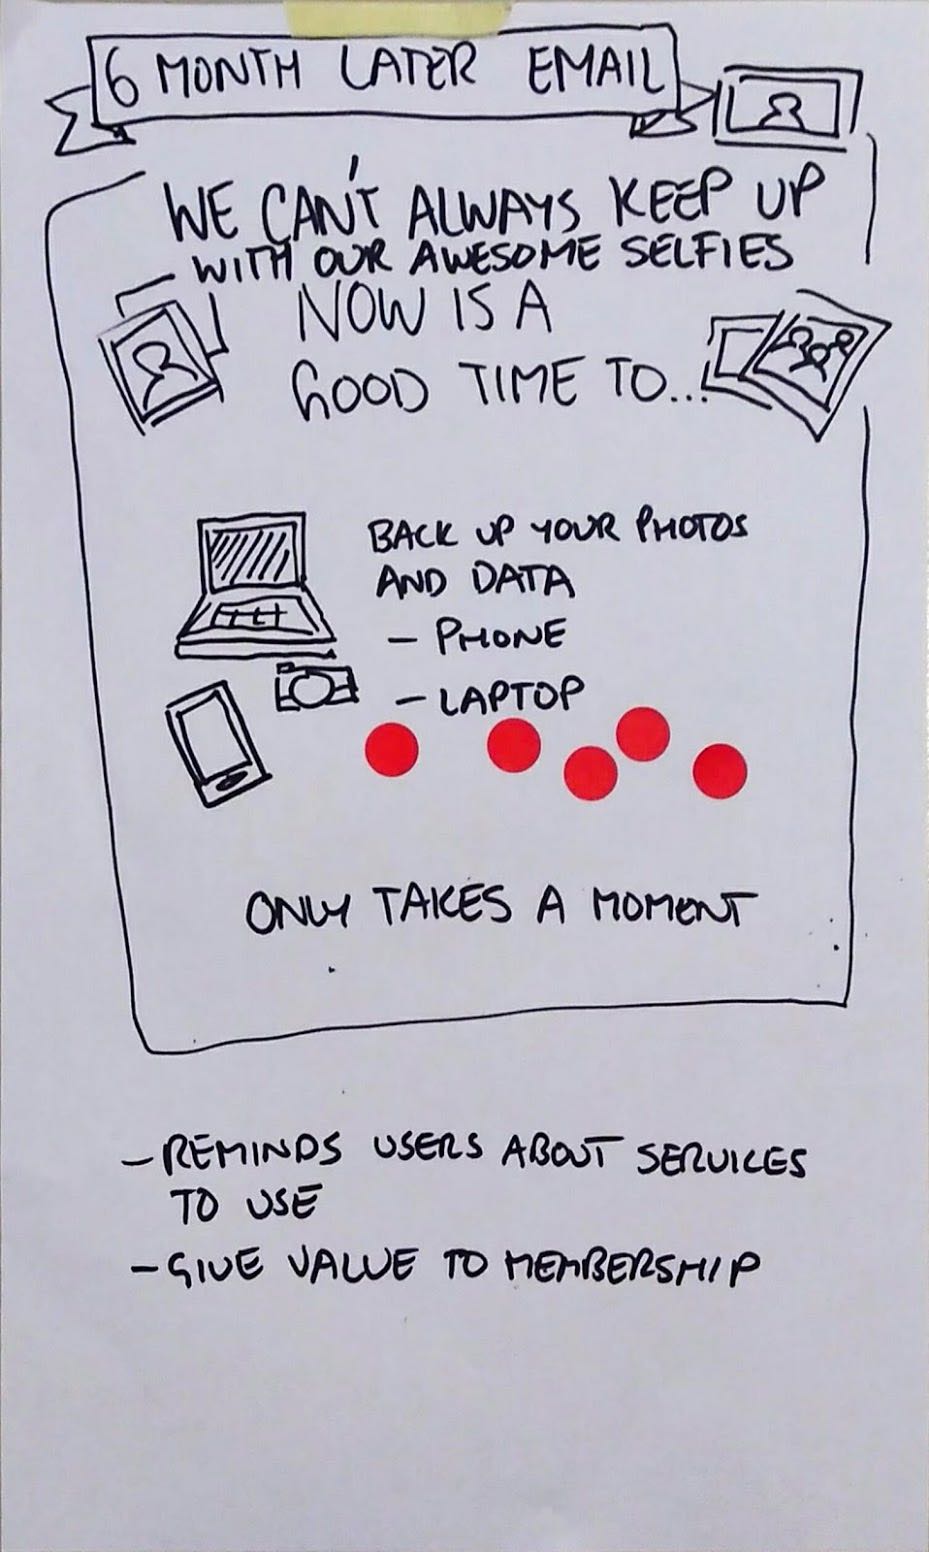 6 MONTH LATER EMAIL
WE CAN'T ALWAYS KEEP UP
WITH OUR AWESOME SELFIES
NOW IS A
GOOD TIME TO...
BACK UP YOUR PHOTOS
AND DATA
- PHONE
- LAPTOP
ONLY TAKES A MOMENT
- REMINDS USERS ABOUT SERVICES
TO USE
- GIVE VALUE TO MEMBERSHIP